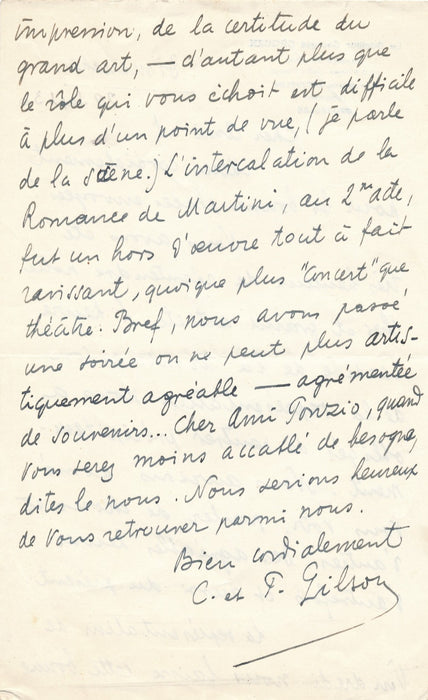 impression, de la certitude du
grand art, — d'autant plus que
le rôle qui vous échoit est difficile
à plus d'un point de vue, (je parle
de la scène.) L'intercalation de la
Romance de Martini, au 2me acte,
fut un hors d'œuvre tout à fait
ravissant, quoique plus "concert" que
théâtre. Bref, nous avons passé
une soirée on ne peut plus artis-
tiquement agréable — agrémentée
de souvenirs... Cher Ami Ponzio, quand
vous serez moins accablé de besogne,
dites le nous. Nous serions heureux
de vous retrouver parmi nous.
Bien cordialement
C. et P. Gilson